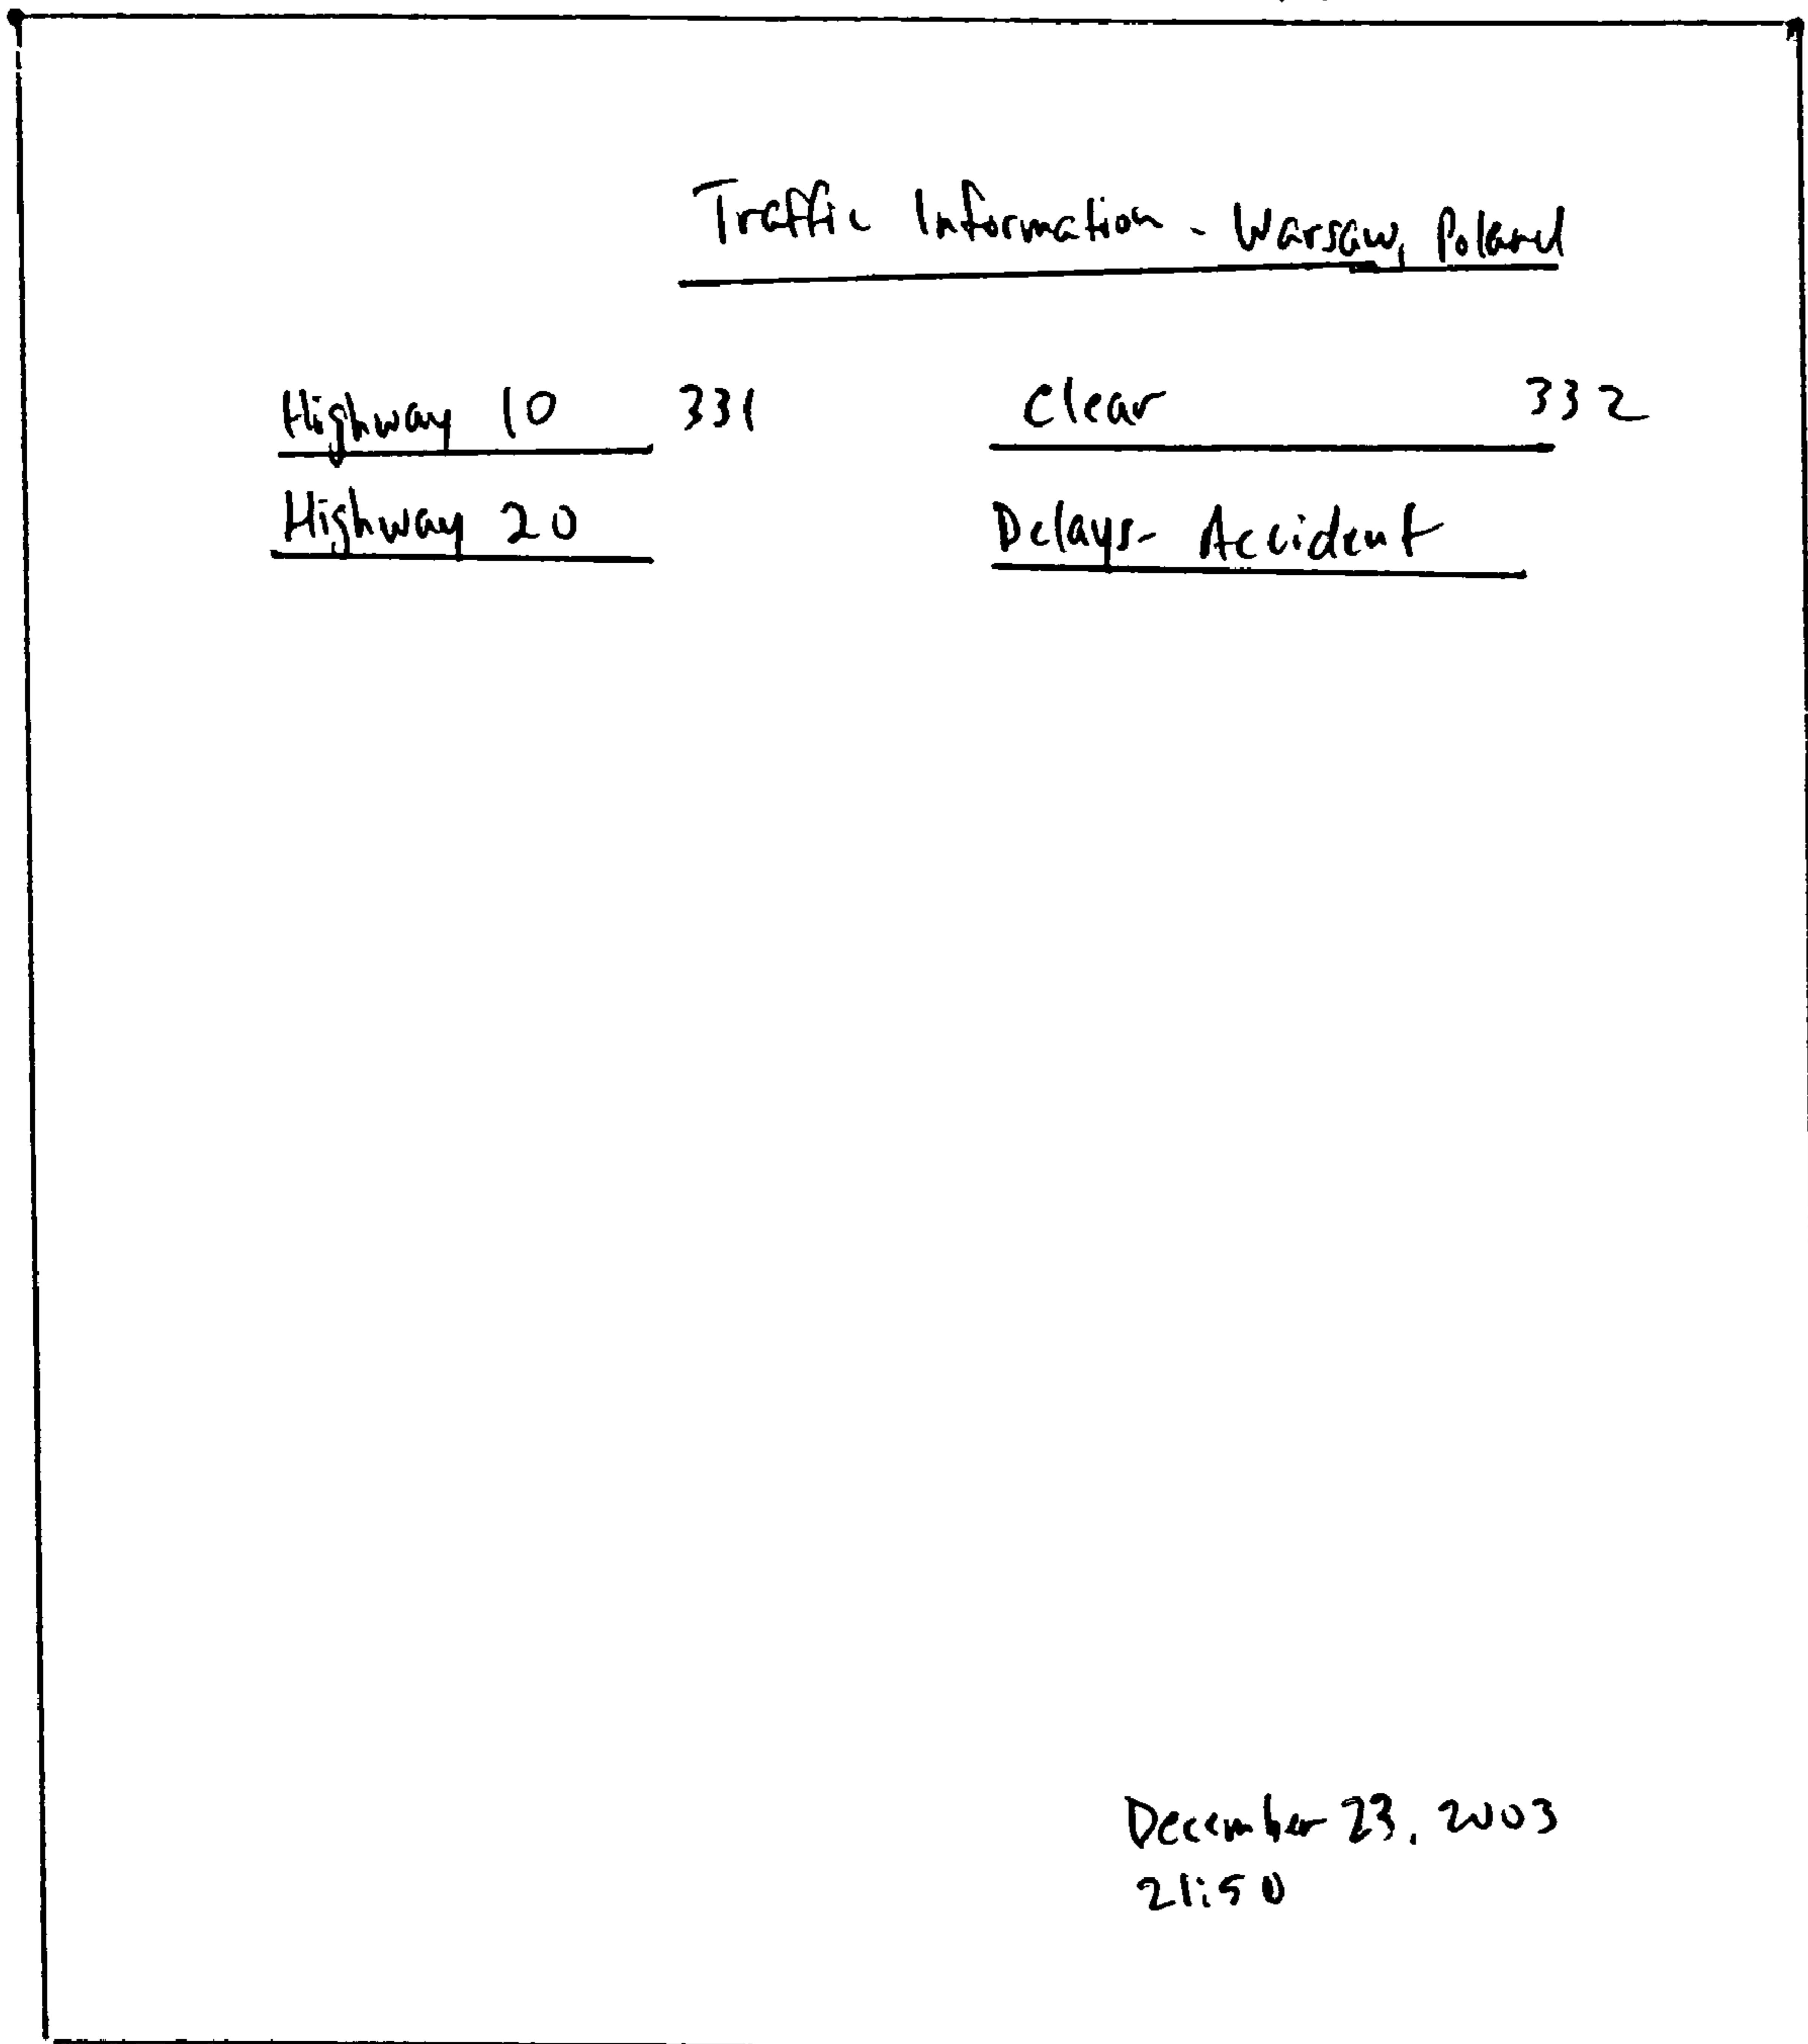 Traffic Information - Warsaw, Poland
Highway 10 331 Clear 332
Highway 20 Delays- Accident
December 23, 2003
21:50